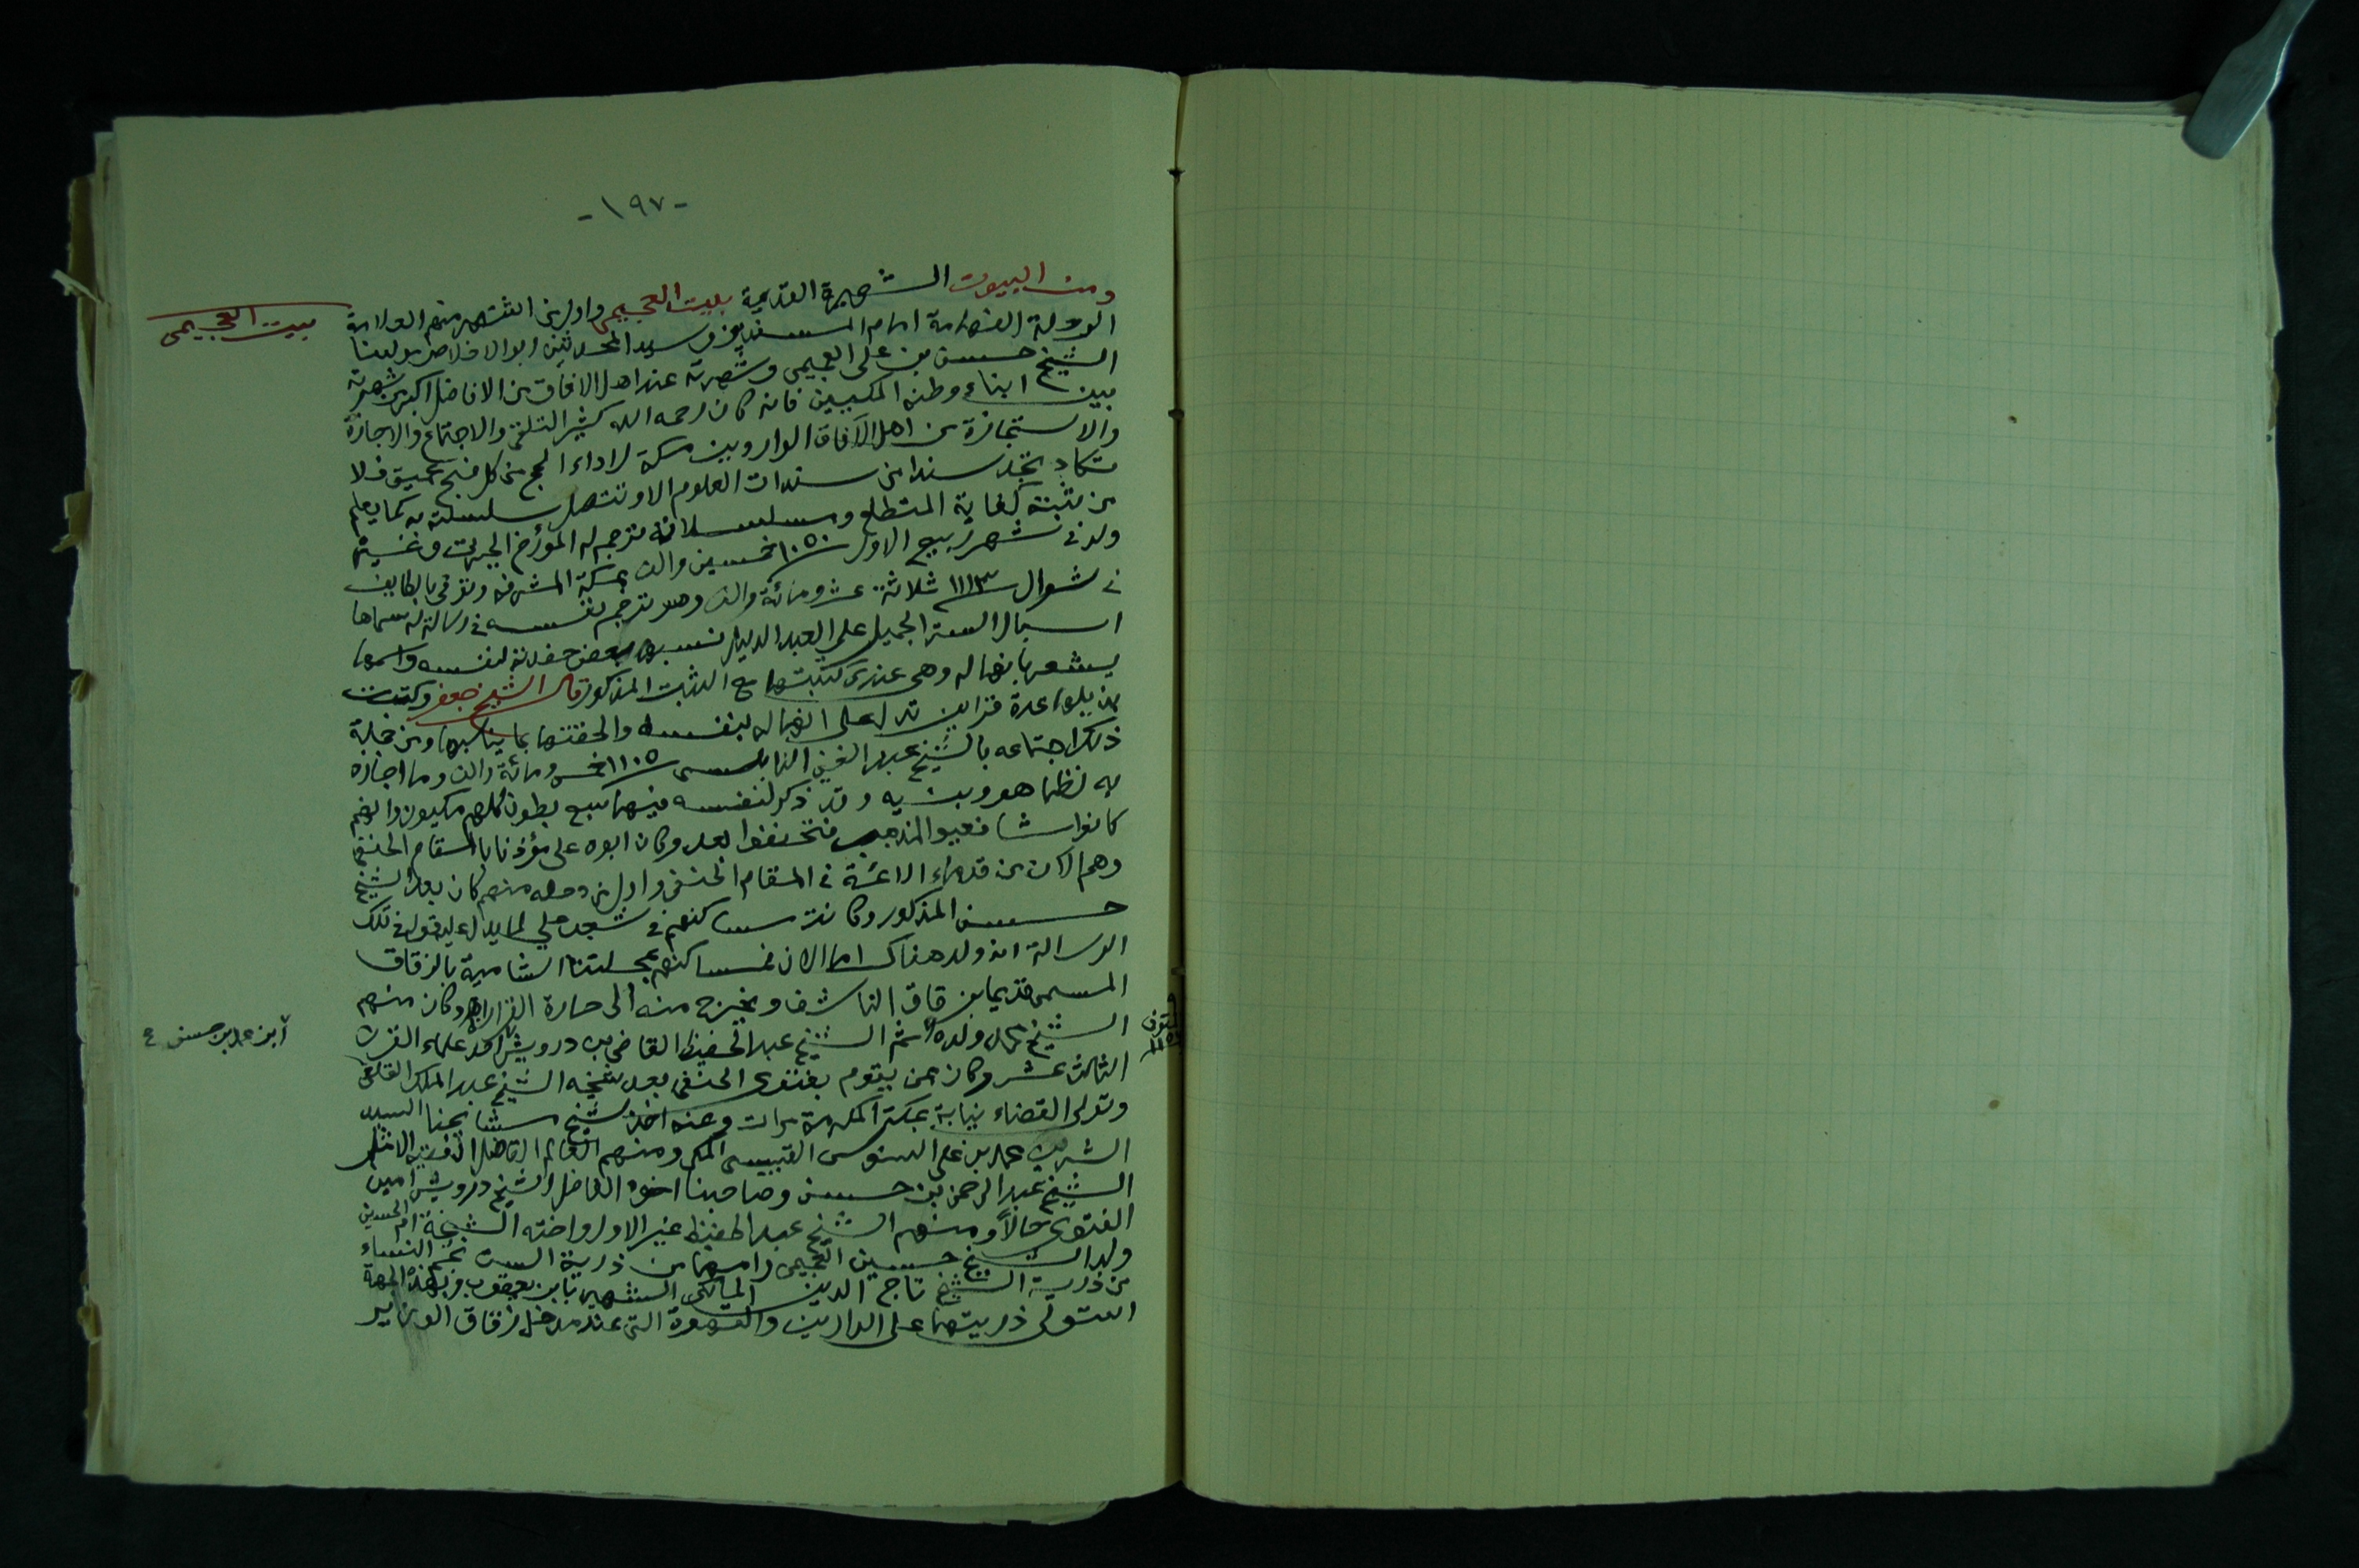 -١٩٧-
ومن البيوت الشهيرة القديمة بيت العجيمي واول من اشتهر منهم العلامة
بيت العجيمي
الرحلة الفهامة امام المسندين وسيد المحدثين ابو الاخلاص مولينا
الشيخ حسن بن علي العجيمي وشهرته عند اهل الافاق من الافاضل اكبر من شهرته
بين ابناء وطنه المكيين فانه كان رحمه الله كثير التلقي والاجتماع والاجازة
والاستجازة من اهل الآفاق الواردين مكة لاداء الحج من كل فج عميق فلا
تكاد تجد سندا من سندات العلوم الا وتتصل سلسلته به كما يعلم
من ثبته كفاية المتطلع ومسلسلاته ترجم له المؤرخ الجبرتي وغيره
ولد في شهر ربيع الاول سنة ١٠٥٠ خمسين والف بمكة المشرفه وتوفي بالطايف
في شوال سنة ١١١٣ ثلاثة عشر ومائة والف وهو ترجم نفسه في رسالة له سماها
اسبال الستر الجميل على العبد الذليل نسبها بعض حفدته لنفسه واسمها
يشعر بانها له وهي عندي كتبتها مع الثبت المذكور قال الشيخ جعفر وكتبت
بذيلها عدة قراين تدل على انها له بنفسه والحقتها بما يناسبها ومن جملة
ذلك اجتماعه بالشيخ عبد الغني النابلسي سنة ١١٠٥ خمس ومائة والف وما اجازه
به نظما هو وبنيه وقد ذكر لنفسه فيها سبع بطون كلهم مكيون وانهم
كانوا شافعيو المذهب فتحنفوا بعد وكان ابوه علي مؤذنا بالمقام الحنفي
وهم الآن من قدماء الائمة في المقام الحنفي واول من دخله منهم كان بعد الشيخ
حسن المذكور وكانت مساكنهم في شعب علي لما يدل عليه قوله في تلك
الرسالة انه ولد هناك اما الان فمساكنهم بمحلتنا الشامية بالزقاق
المسمى قديما بزقاق الناشف ويخرج منه الى حارة القرارة وكان منهم
الشيخ محمد ولده ثم الشيخ عبد الحفيظ القاضي بن درويش احد علماء القرن
المتوفى
١١٥٦
آبن محمد بن حسن ع
الثالث عشر وكان ممن يقوم بفتوى الحنفي بعد شيخه الشيخ عبد الملك القلعي
وتولى القضاء نيابة بمكة المكرمة مرات وعنه اخذ شيخ مشايخنا السيد
الشريف محمد بن علي السنوسي القبيسي المكي ومنهم العالم الفاضل الفقيه الامثل
الشيخ عبد الرحمن بن حسن وصاحبنا اخوه الفاضل الشيخ درويش امين
الفتوى حالاً ومنهم الشيخ عبد الحفيظ غير الاول واخته الشيخة ام الحسين
ولد الشيخ حسين العجيمي وامهما من ذرية الست نجم النساء
من ذرية الشيخ تاج الدين المالكي الشهير بابن يعقوب فبهذه الجهة
استولى ذريتهما على الدارين والقهوة التي عند مدخل زقاق الوزير